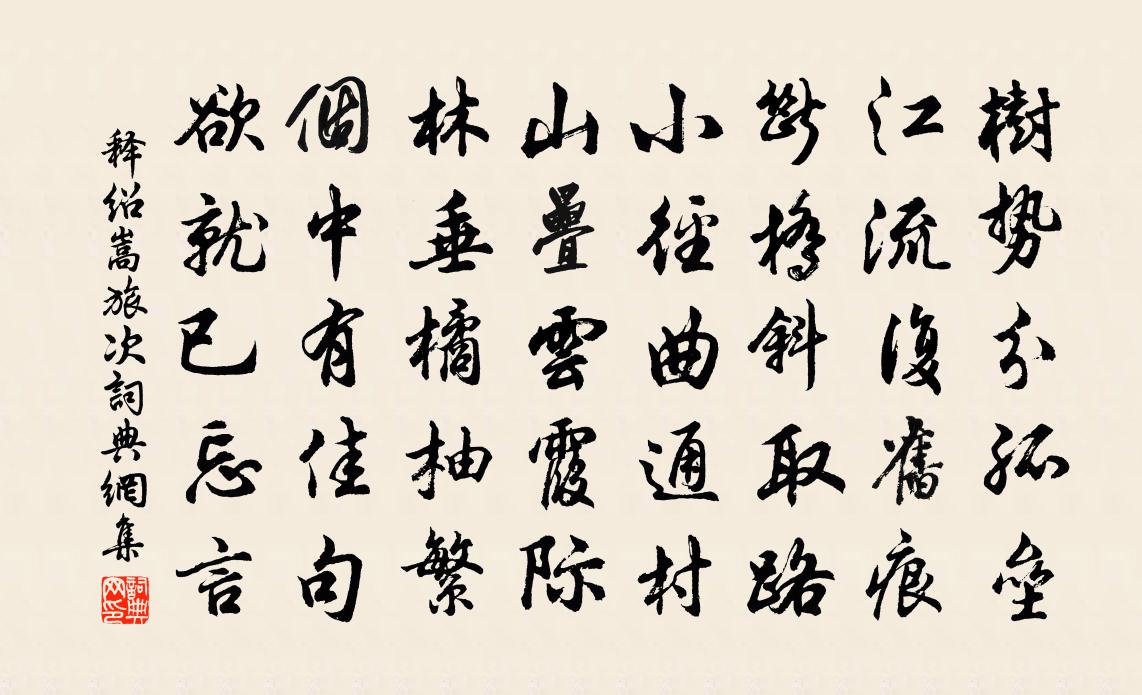 樹勢分孤壘
江流復舊痕
斷橋斜取路
小徑曲通村
山疊雲霞际
林垂橘柚繁
個中有佳句
欲就已忘言
释绍嵩旅次詞典網集
詞典網印